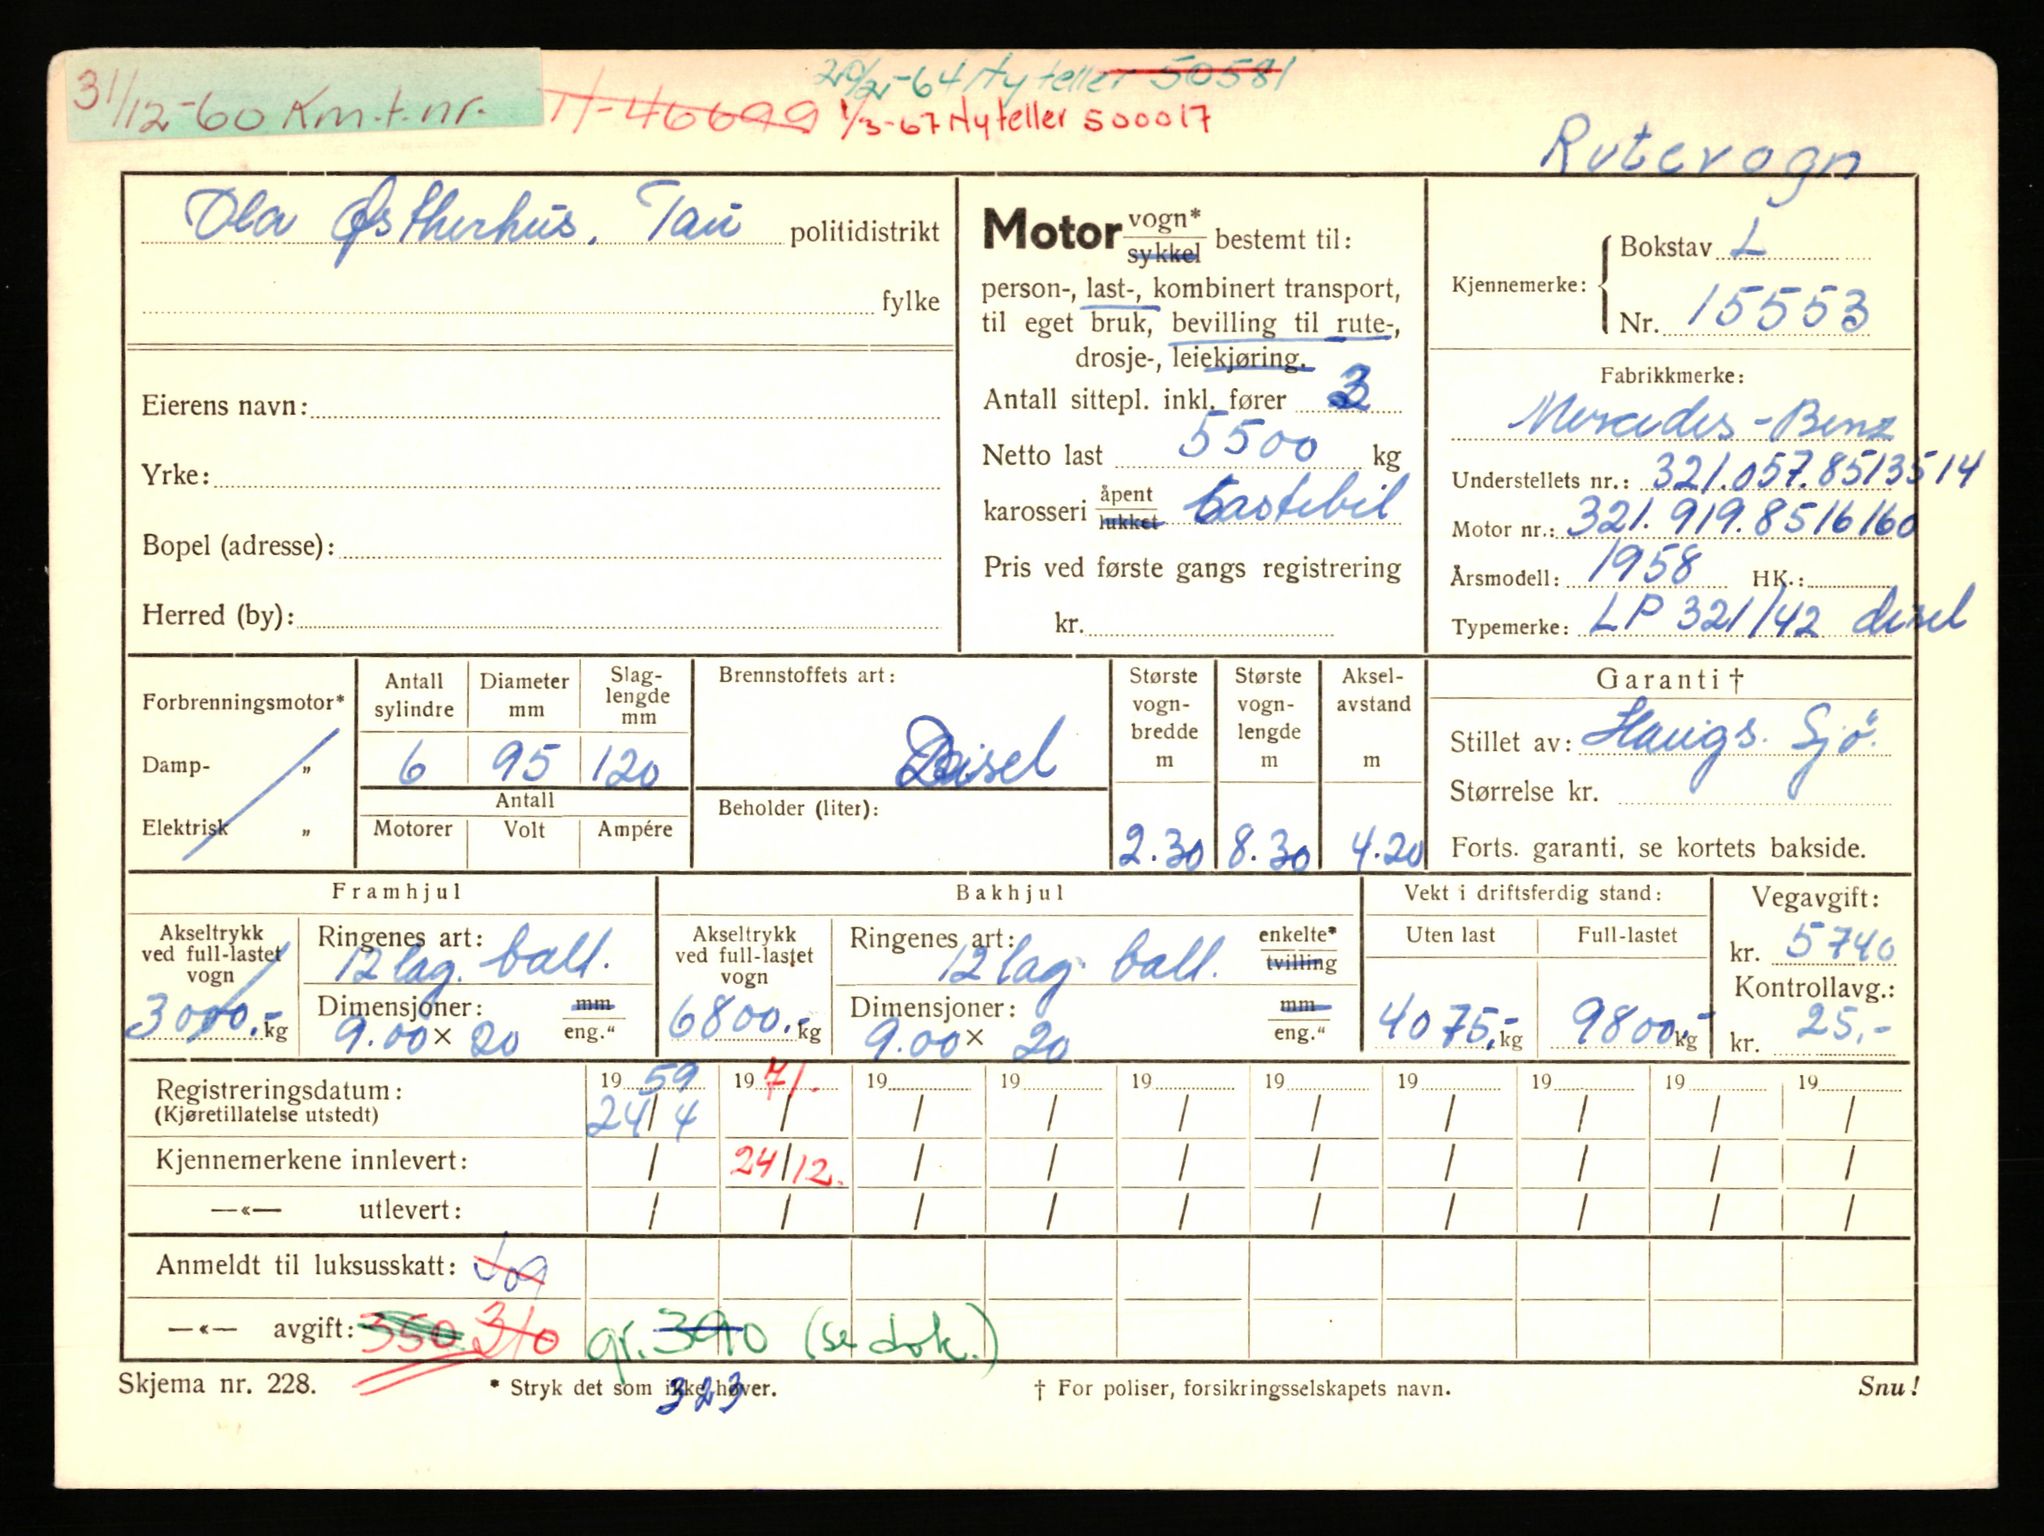 31/12-60 Km.t.nr. H-46699
29/2-64 Ny teller 50581
1/3-67 Ny teller 500017
Rutevogn
Ola Østherhus, Tau politidistrikt
fylke
Eierens navn:
Yrke:
Bopel (adresse):
Herred (by):
Motor vogn* sykkel bestemt til:
person-, last-, kombinert transport,
til eget bruk, bevilling til rute-,
drosje-, leiekjøring.
Antall sittepl. inkl. fører 3
Netto last 5500 kg
karosseri åpent lukket Lastebil
Pris ved første gangs registrering
kr.
Kjennemerke: Bokstav L
Nr. 15553
Fabrikkmerke:
Mercedes-Benz
Understellets nr.: 321.057.8513514
Motor nr.: 321.919.8516160
Årsmodell: 1958 HK.:
Typemerke: LP 321/42 disel
Forbrenningsmotor*
Damp- „
Elektrisk „
Antall sylindre Diameter mm Slag- lengde mm
6 95 120
Antall
Motorer Volt Ampére
Brennstoffets art:
Disel
Beholder (liter):
Største vogn- bredde m 2.30
Største vogn- lengde m 8.30
Aksel- avstand m 4.20
Garanti †
Stillet av: Haugs. Sjø.
Størrelse kr.
Forts. garanti, se kortets bakside.
Framhjul
Akseltrykk ved full-lastet vogn
3000.- kg
Ringenes art: 12 lag. ball.
Dimensjoner: mm
9.00 × 20 eng."
Bakhjul
Akseltrykk ved full-lastet vogn
6800.- kg
Ringenes art: 12 lag. ball. enkelte* tvilling
Dimensjoner: mm
9.00 × 20 eng."
Vekt i driftsferdig stand:
Uten last Full-lastet
4075,- kg 9800,- kg
Vegavgift:
kr. 5740
Kontrollavg.:
kr. 25,-
Registreringsdatum: 19 59 19 71. 19 19 19 19 19 19 19 19
(Kjøretillatelse utstedt) 24/4 / / / / / / / / /
Kjennemerkene innlevert: / 24/12. / / / / / / / /
—«— utlevert: / / / / / / / / / /
Anmeldt til luksusskatt:
—«— avgift: 350 310 gr. 390 (se dok.)
323
Skjema nr. 228. * Stryk det som ikke høver. † For poliser, forsikringsselskapets navn. Snu!